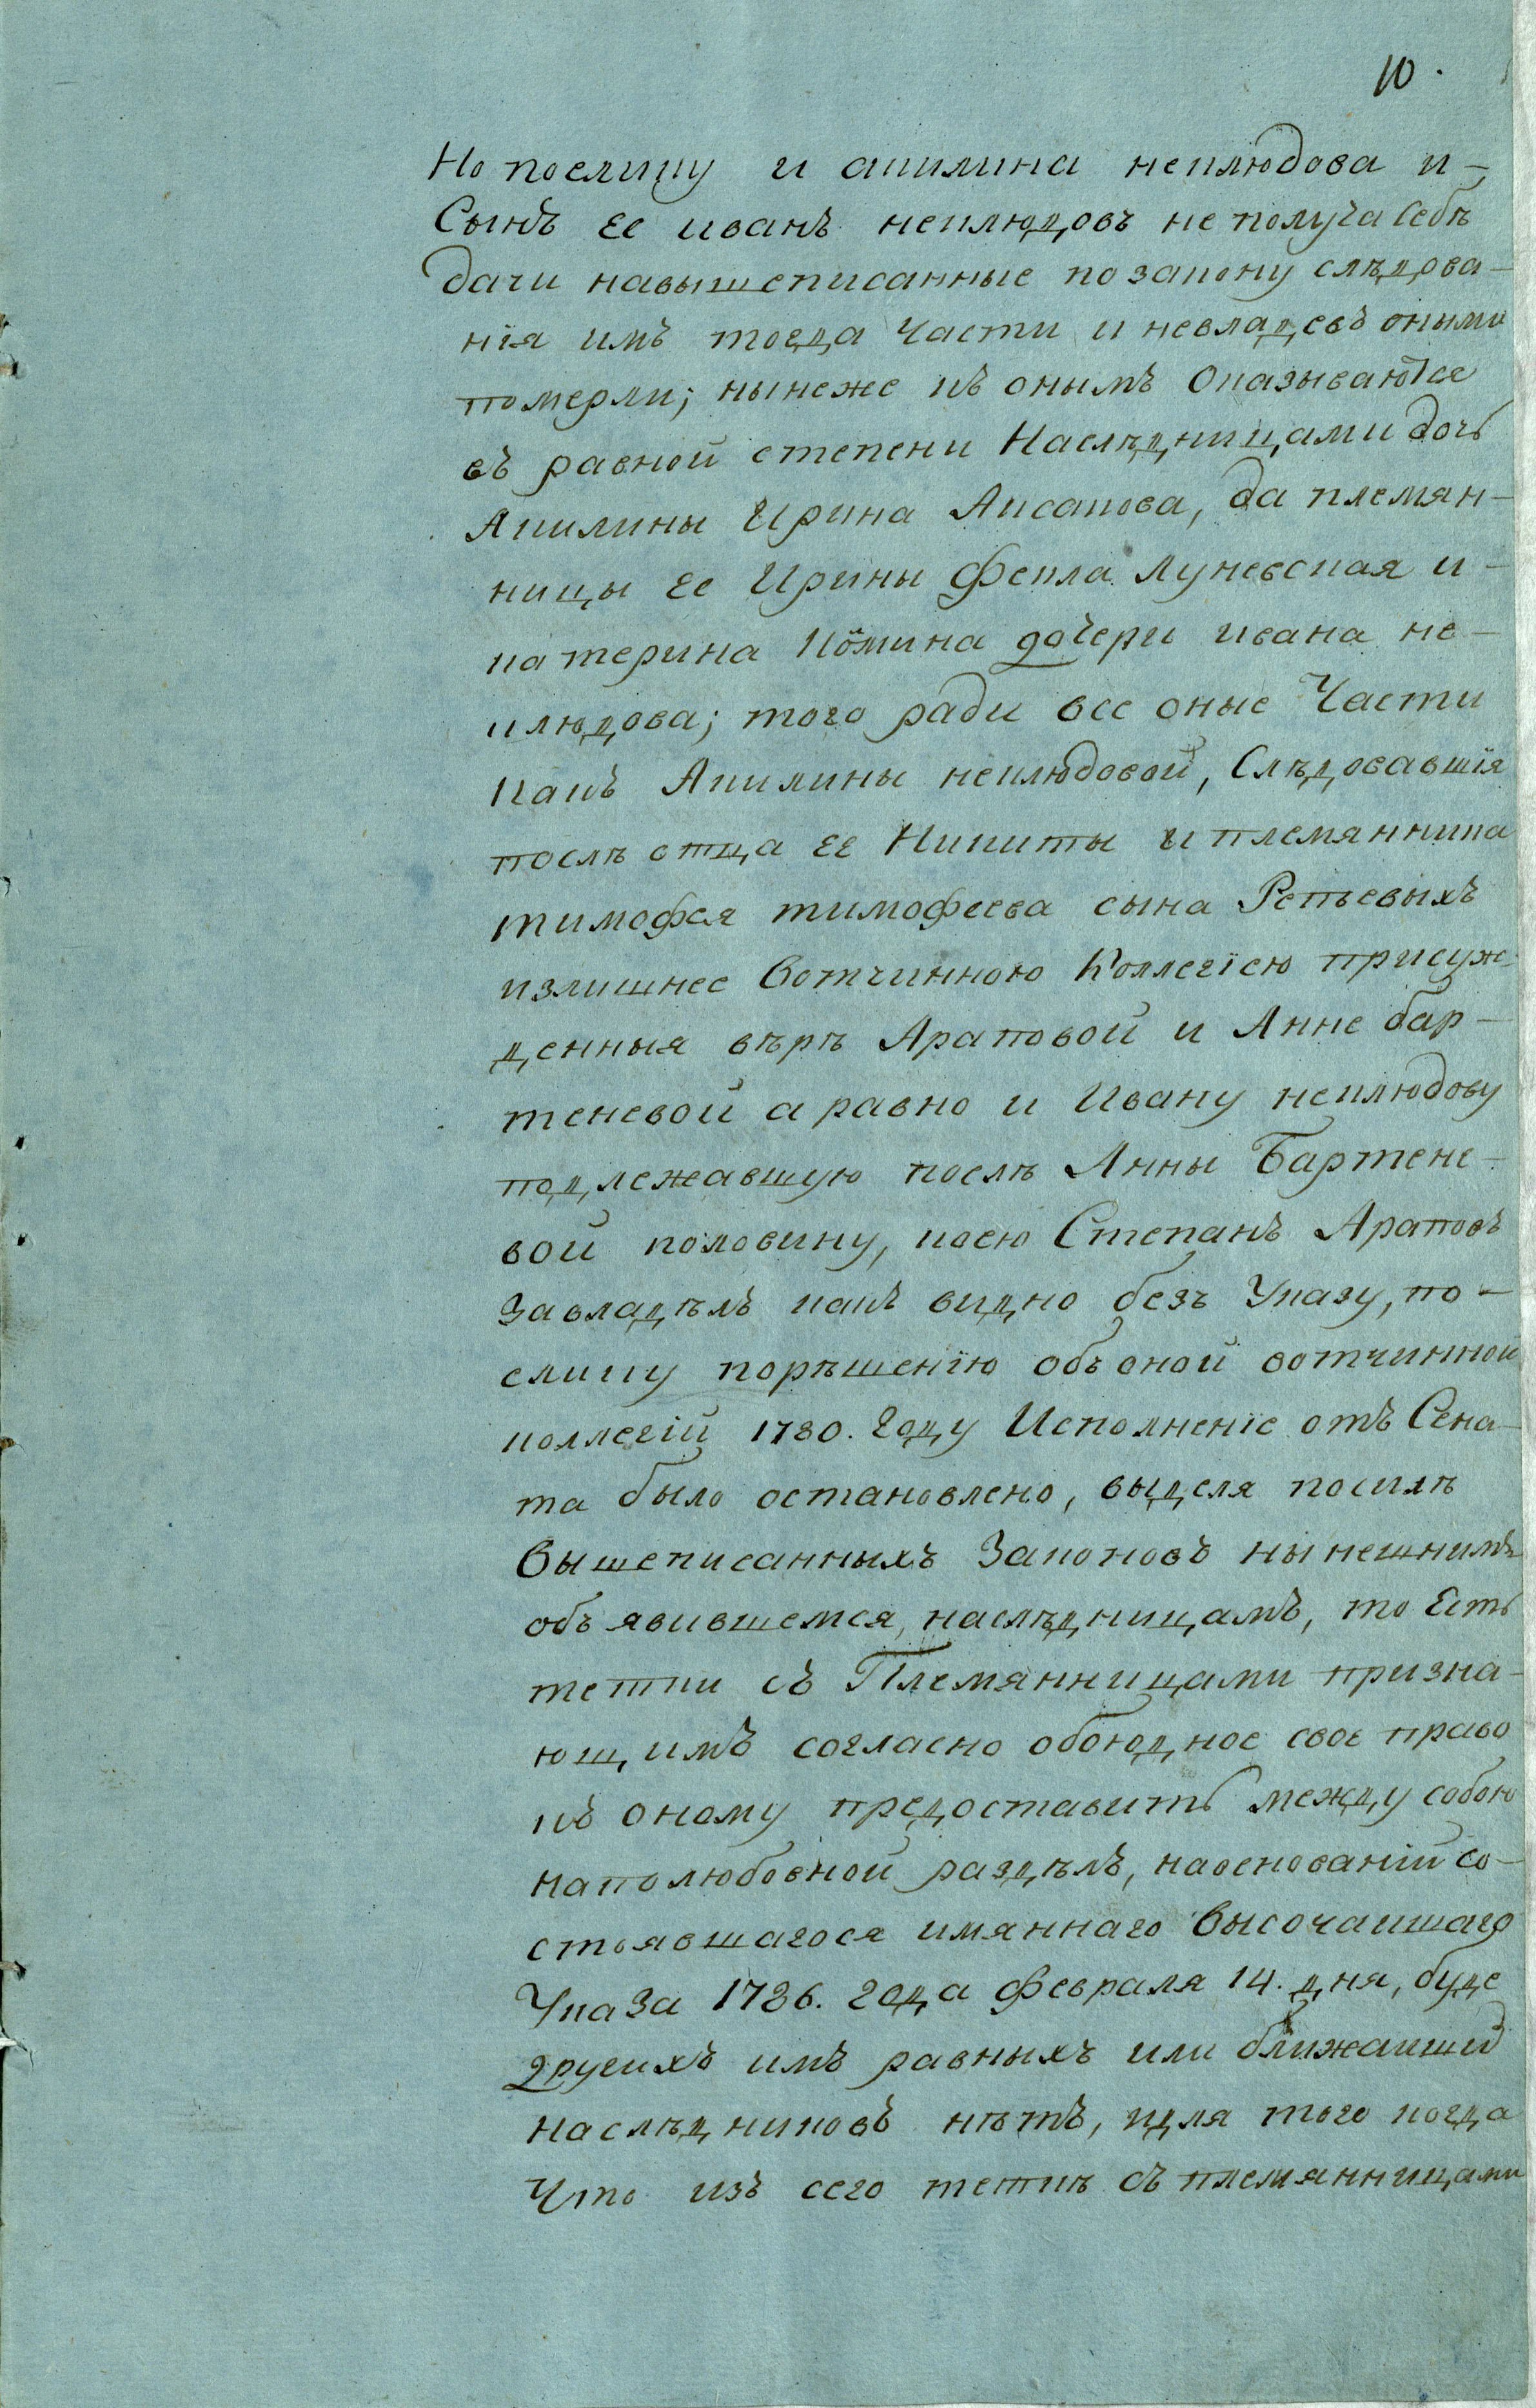 10.
Но поелику и акилина неклюдова и-
Сынъ ее иванъ неклюдовъ не получа себѣ
дачи навышеписанные по закону слѣдова-
нїя имъ тогда части и невладевъ оными
померли; ныне же къ онымъ Оказываются
въ равной степени Наслѣдницами дочь
Акилины Ирина Аксакова, да племян-
ницы ее Ирины Фекла Луневская и-
катерина дочери ивана не-
клюдова; того ради все оные Части
какъ Акилины неклюдовой, Слѣдовавшїя
послѣ отца ее Никиты и племянника
тимофея тимофеева сына Репьевыхъ
излишнее Вотчинною Коллегїею присуж-
денныя вѣрѣ Араповой и Анне бар-
теневой а равно и Ивану неклюдову
подлежавшую послѣ Анны Бартене-
вой половину, коею Степанъ Араповъ
Завладѣлъ какъ видно безъ Указу, по-
елику порѣшенїю объ оной вотчинной
коллегїй 1780. году Исполненїе отъ Сена-
та было остановлено, выделя посилѣ
Вышеписанныхъ Законовъ нынешнимъ
объявившемся наслѣдницамъ, то Есть
тетки съ Племянницами призна-
ющимъ согласно обоюдное свое право
къ оному предоставить между собою
наполюбовной раздѣлъ, наоснованїй со-
стоявшагося имяннаго Высочаишаго
Указа 1786. года февраля 14. дня, буде
другихъ имъ равныхъ или ближаиши
наслѣдниковъ нѣтъ, идля того когда
Что изъ сего теткѣ съ племянницами